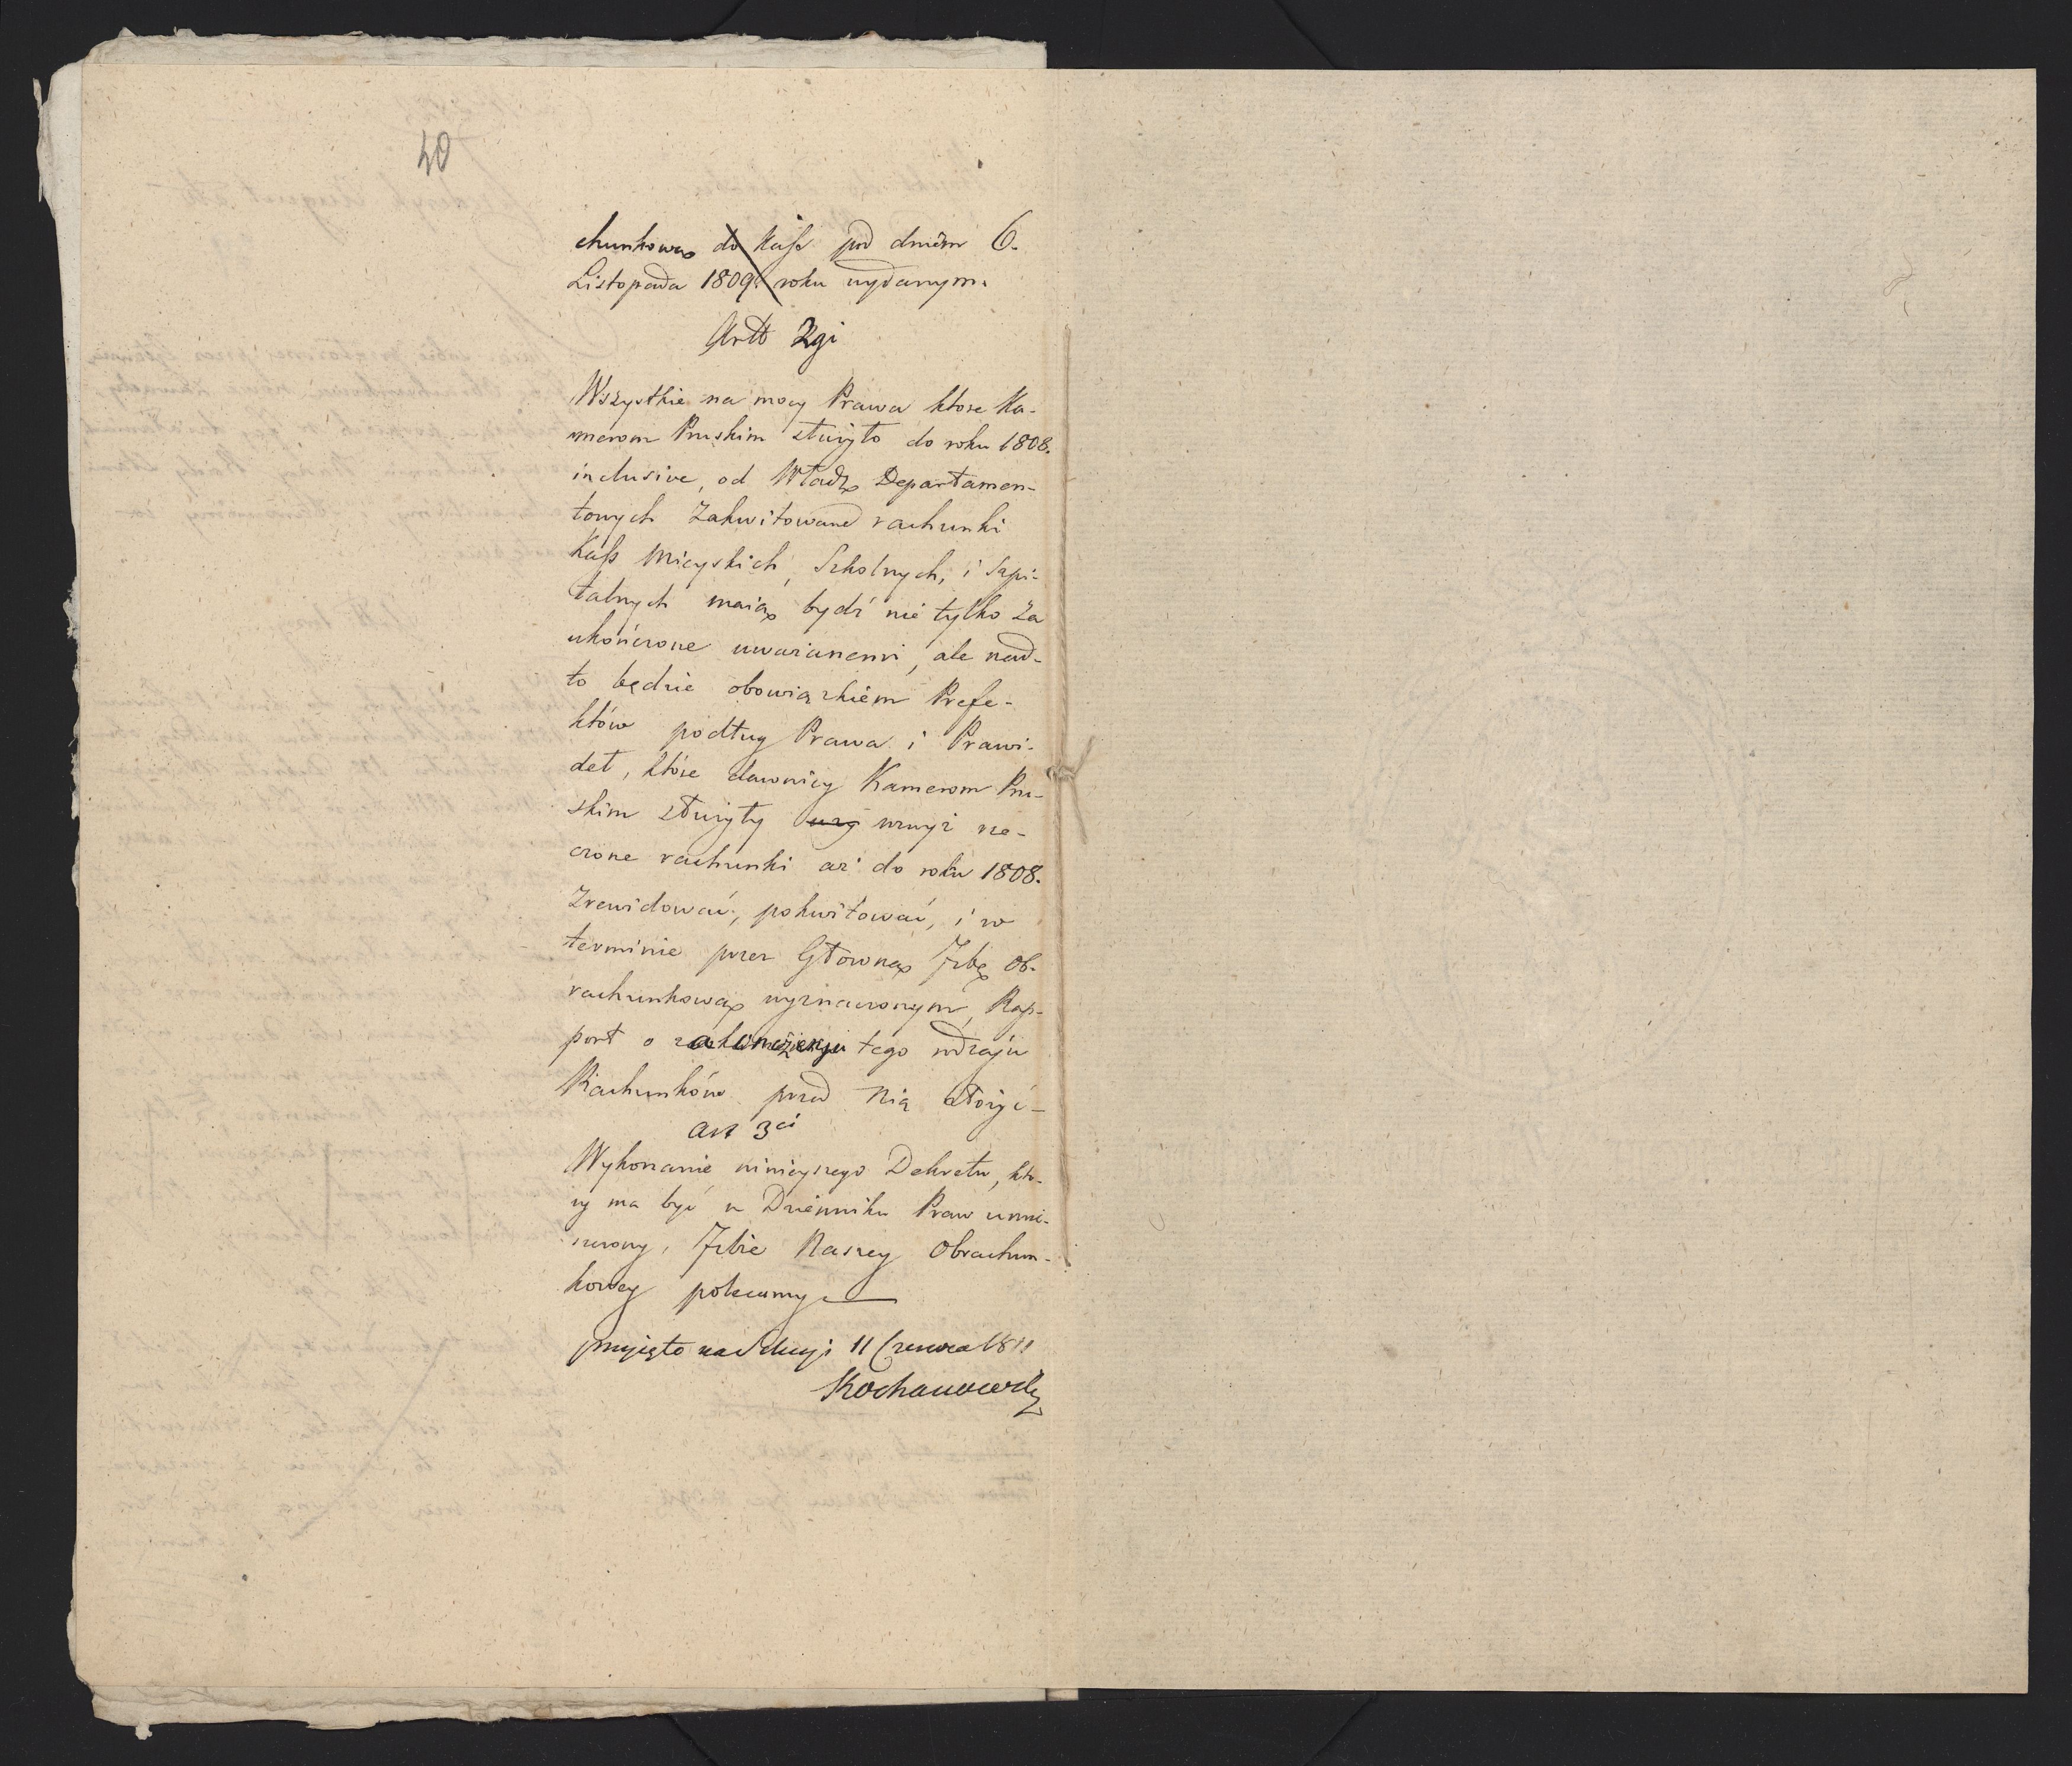 40
chunkową do Kass pod dniem 6.
Listopada 1809. roku wydanym.
Artt 2gi
Wszystkie na mocy Prawa ktore Ka-
merom Pruskim służyło do roku 1808.
inclusive, od Władz Departamen-
towych Zakwitowane rachunki
Kass Mieyskich, Szkolnych, i Szpi-
talnych maią bydź nie tylko za
ukończone uważanemi, ale nad-
to będzie obowiązkiem Prefe-
któw podług Prawa i Prawi-
deł, które dawniey Kamerom Pru-
skim służyły wzwyż rze-
czone rachunki aż do roku 1808.
Zrewidować, pokwitować, i w
terminie przez Główną Izbę Ob-
rachunkową wyznaczonym, Rap-
port o tego rodzaju
Rachunków przed Nią złożyć-
Art 3ci
Wykonanie ninieyszego Dekretu, kto-
ry ma być w Dzienniku Praw umie-
szczony, Izbie Naszey Obrachun-
kowey polecamy
przyięto na Sessyi 11 Czerwca 1811
Kochanowski